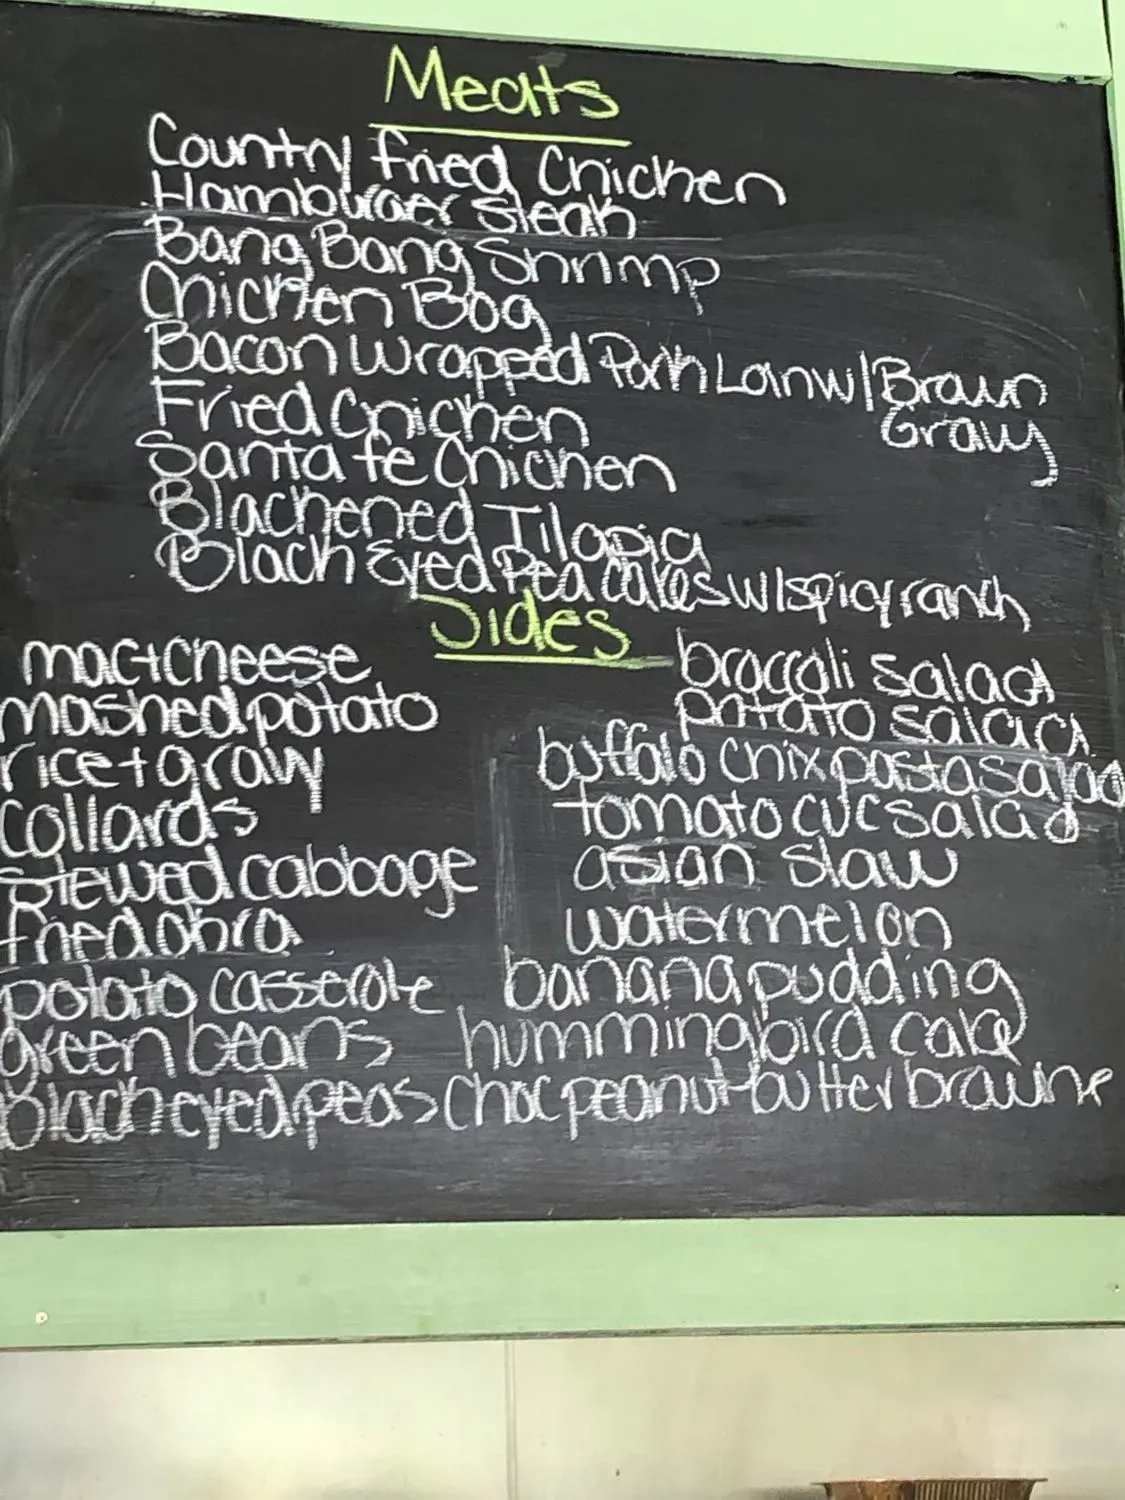 Meats
Country Fried Chicken
Hamburger Steak
Bang Bang Shrimp
Chicken Bog
Bacon Wrapped Pork Loin w/ Brown
Gravy
Fried Chicken
Santa fe Chicken
Blackened Tilapia
Black Eyed Pea Cakes w/ spicy ranch
Sides
mac + cheese
mashed potato
rice + gravy
collards
stewed cabbage
fried okra
potato casserole
green beans
Black eyed peas
broccoli salad
potato salad
buffalo chix pasta salad
tomato cuc salad
asian slaw
watermelon
banana pudding
hummingbird cake
choc peanut-butter brownie